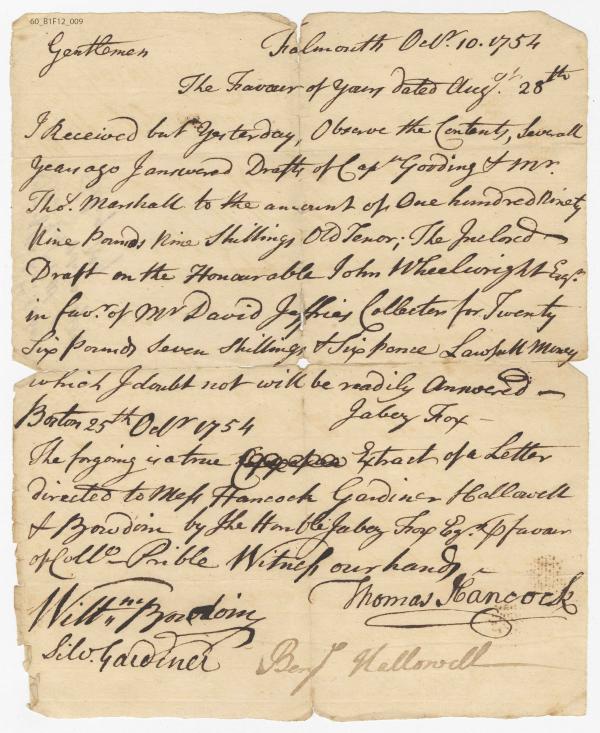 60_B1F12_009
Gentlemen Falmouth Octr. 10. 1754
The Favour of Yours dated Augst. 28th
I Received but Yesterday, Observe the Contents, Severall
Years ago I answered Drafts of Capt Gooding & Mr.
Thos. Marshall to the amount of One hundred Ninety
Nine Pounds Nine Shillings Old Tenor; The Inclosd
Draft on the Honourable John Wheelwright Esqr.
in favr. of Mr David Jeffries Collecter for Twenty
Six Pounds Seven Shillings & Six Pence Lawfull Money
which I doubt not will be readily Answered
Jabez Fox
Boston 25th Octr 1754
The forgoing is a true Extract of a Letter
directed to Mess Hancock Gardiner Hallowell
& Bowdoin by The Honble Jabez Fox Esqr. favour
of Collo. Prible Witness our hands
Willm Bowdoin Thomas Hancock
Silv. Gardiner Benj Hallowell